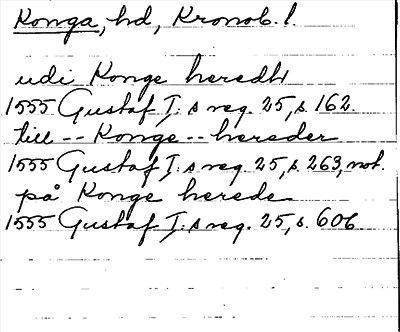 Konga, hd, Kronob. l.
udi Konge heredh
1555 Gustaf I:s reg. 25, s. 162.
till -- Konge -- herader
1555 Gustaf I:s reg. 25, s. 263, not.
på Konge herede
1555 Gustaf I:s reg. 25, s. 606